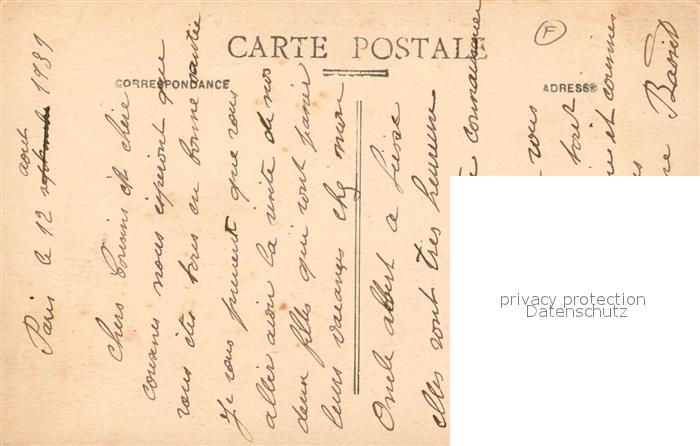 CARTE POSTALE
CORRESPONDANCE
ADRESSE
F
Paris le 12 août 1931
Chers Cousins et chère
cousines nous esperont que
vous êtes tous en bonne santée
Je vous previent que vous
allez avoir la visite de nos
deux filles qui vont passer
leurs vacances chez mon
Oncle albert a
elles sont très heureuse
connaissance
vous
tout
et cousines
privacy protection
Datenschutz